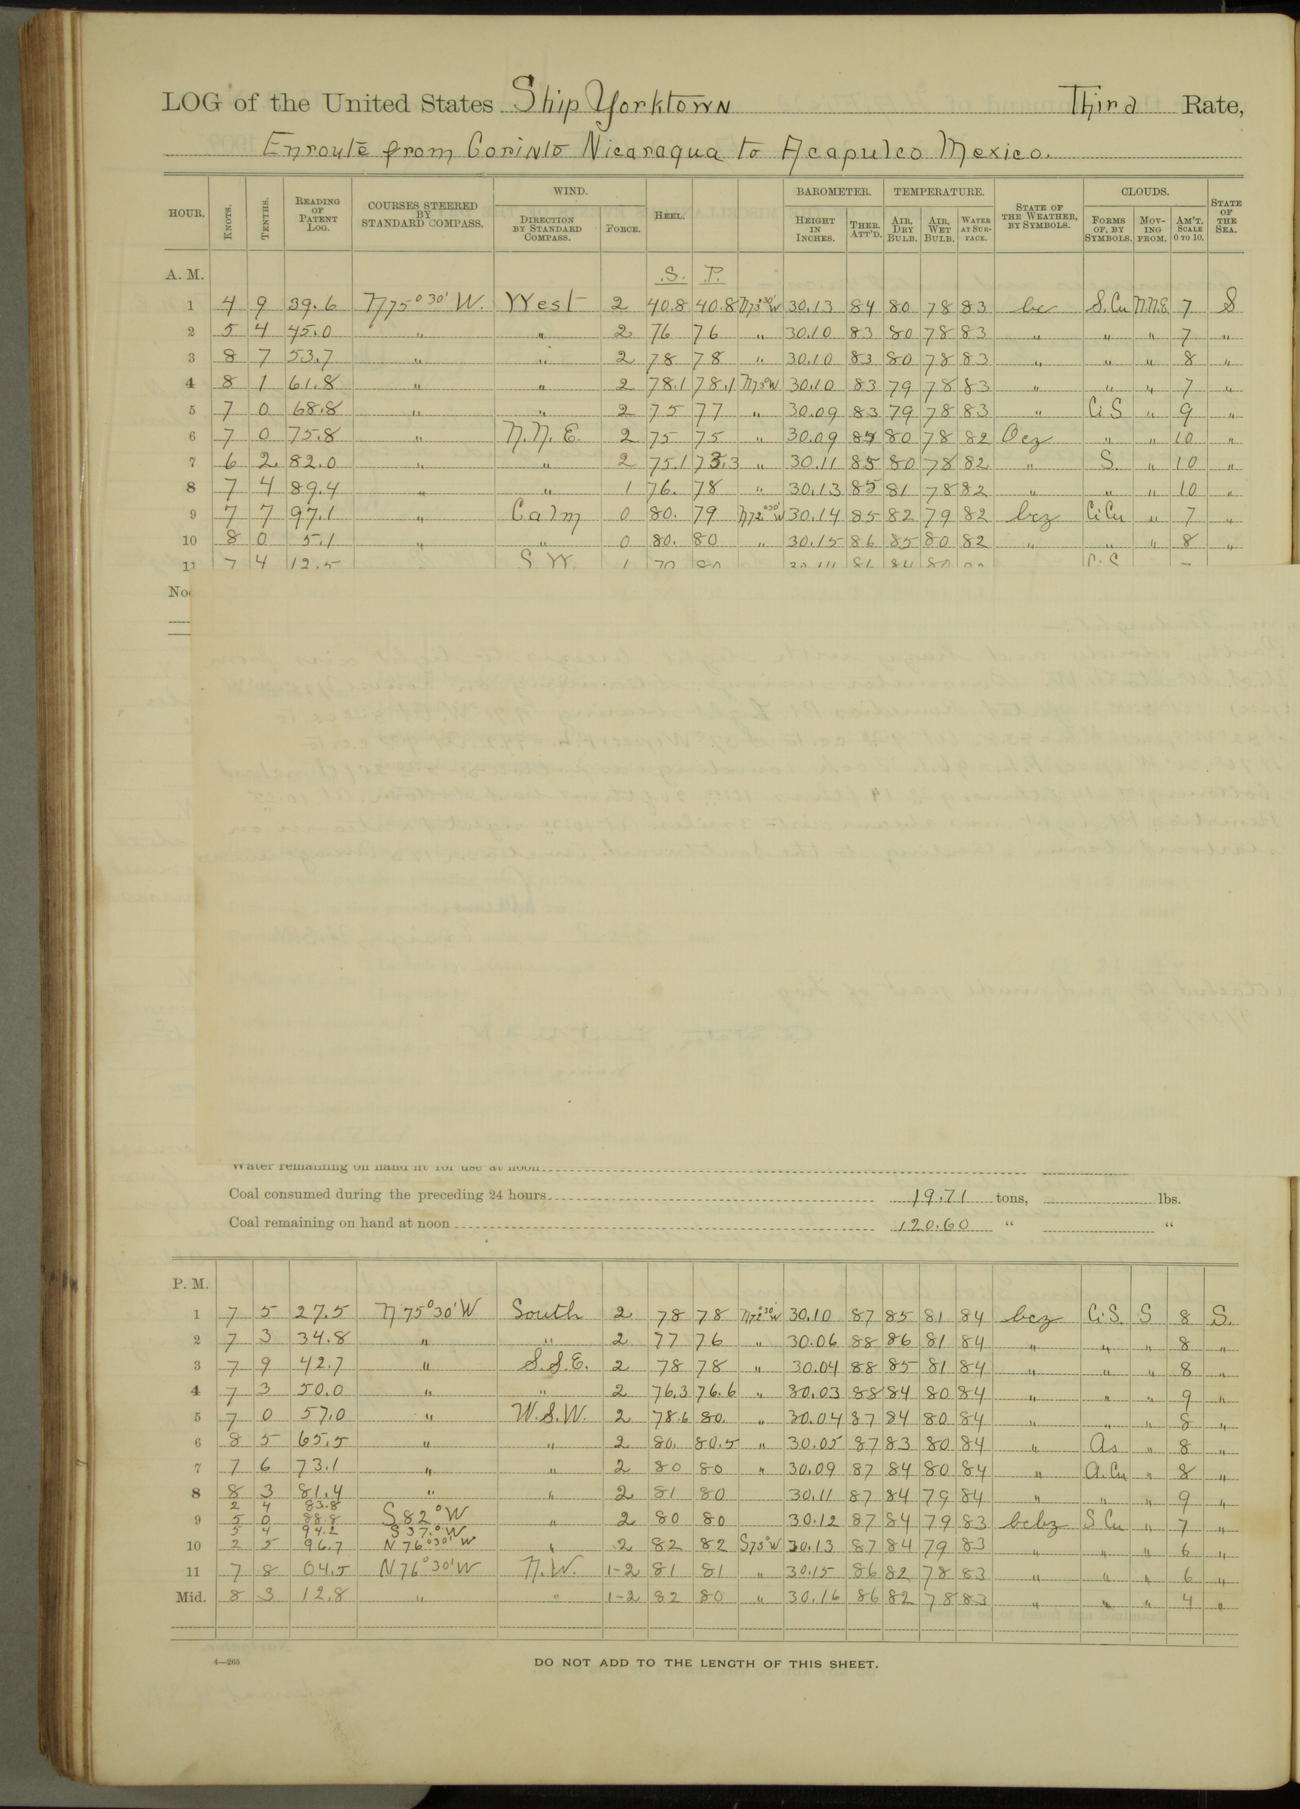 LOG of the United States Ship Yorktown Third Rate,
Enroute from Corinto Nicaragua to Acapulco Mexico.
HOUR. KNOTS. TENTHS. READING OF PATENT LOG. COURSES STEERED BY STANDARD COMPASS. WIND. DIRECTION BY STANDARD COMPASS. FORCE. HEEL. BAROMETER. HEIGHT IN INCHES. THER. ATT'D. TEMPERATURE. AIR, DRY BULB. AIR, WET BULB. WATER AT SURFACE. STATE OF THE WEATHER, BY SYMBOLS. CLOUDS. FORMS OF, BY SYMBOLS. MOVING FROM. AM'T. SCALE 0 TO 10. STATE OF THE SEA.
A. M. S. P.
1 4 9 39.6 N75°30' W. West 2 40.8 40.8 N73°30'W 30.13 84 80 78 83 bc S.Cu N.N.E. 7 S
2 5 4 45.0 " " 2 76 76 " 30.10 83 80 78 83 " " " 7 "
3 8 7 53.7 " " 2 78 78 " 30.10 83 80 78 83 " " " 8 "
4 8 1 61.8 " " 2 78.1 78.1 N73°W 30.10 83 79 78 83 " " " 7 "
5 7 0 68.8 " " 2 75 77 " 30.09 83 79 78 83 " Ci.S " 9 "
6 7 0 75.8 " N.N.E. 2 75 75 " 30.09 84 80 78 82 Ocz " " 10 "
7 6 2 82.0 " " 2 75.1 73.3 " 30.11 85 80 78 82 " S. " 10 "
8 7 4 89.4 " " 1 76. 78 " 30.13 85 81 78 82 " " " 10 "
9 7 7 97.1 " Calm 0 80. 79 N72°30'W 30.14 85 82 79 82 bcz CiCu " 7 "
10 8 0 5.1 " " 0 80. 80 " 30.15 86 85 80 82 " " " 8 "
11 7 4 12.5 S.W.
Water remaining on hand fit for use at noon
Coal consumed during the preceding 24 hours 19.71 tons, lbs.
Coal remaining on hand at noon 120.60 " "
P. M.
1 7 5 27.5 N 75°30' W South 2 78 78 N72°30'W 30.10 87 85 81 84 bcz Ci.S. S 8 S.
2 7 3 34.8 " " 2 77 76 " 30.06 88 86 81 84 " " " 8 "
3 7 9 42.7 " S.S.E. 2 78 78 " 30.04 88 85 81 84 " " " 8 "
4 7 3 50.0 " " 2 76.3 76.6 " 30.03 88 84 80 84 " " " 9 "
5 7 0 57.0 " W.S.W. 2 78.6 80. " 30.04 87 84 80 84 " " " 8 "
6 8 5 65.5 " " 2 80. 80.5 " 30.05 87 83 80 84 " As " 8 "
7 7 6 73.1 " " 2 80 80 " 30.09 87 84 80 84 " A.Cu " 8 "
8 8 3 81.4 " " 2 81 80 30.11 87 84 79 84 " " " 9 "
2 4 83.8
9 5 0 88.8 S 82° W " 2 80 80 30.12 87 84 79 83 bcbz S Cu " 7 "
5 4 94.2 S 37.° W
10 2 5 96.7 N 76°30' W " 2 82 82 S75°W 30.13 87 84 79 83 " " " 6 "
11 7 8 04.5 N 76°30' W N.W. 1-2 81 81 " 30.15 86 82 78 83 " " " 6 "
Mid. 8 3 12.8 " " 1-2 82 80 " 30.16 86 82 78 83 " " " 4 "
4—265
DO NOT ADD TO THE LENGTH OF THIS SHEET.